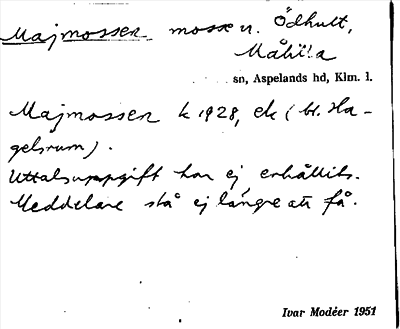 Majmossen mosse v. Ödhult,
Målilla
sn, Aspelands hd, Klm. l.
Majmossen k 1928, ek (bl. Ha-
gelsrum).
Uttalsuppgift har ej erhållits.
Meddelare stå ej längre att få.
Ivar Modéer 1951